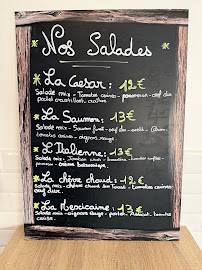 Nos Salades
La Caesar : 12€
Salade mix - Tomates cerises - parmesan - oeuf dur
poulet croustillant, croûtons
La Saumon : 13€
Salade mix - Saumon fumé - oeuf dur - - Citron,
tomates cerises, oignons rouge.
L'Italienne : 13€
Salade mix - Jambon - tomates cerises -
crème balsamique.
La chèvre chaud : 12€
Salade mix - chèvre chaud sur Toast - tomates cerises
oeuf dur.
La Mexicaine : 13€
Salade mix - oignons rouge - poulet - - tomates